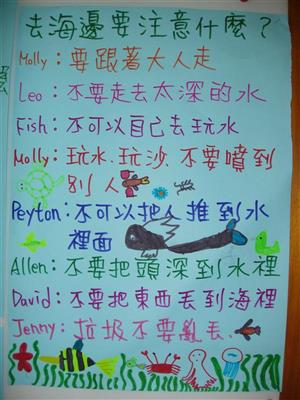 去海邊要注意什麼？
Molly：要跟著大人走
Leo：不要走去太深的水
Fish：不可以自己去玩水
Molly：玩水、玩沙、不要噴到
別人
Peyton：不可以把人推到水
裡面
Allen：不要把頭深到水裡
David：不要把東西丟到海裡
Jenny：垃圾不要亂丟、